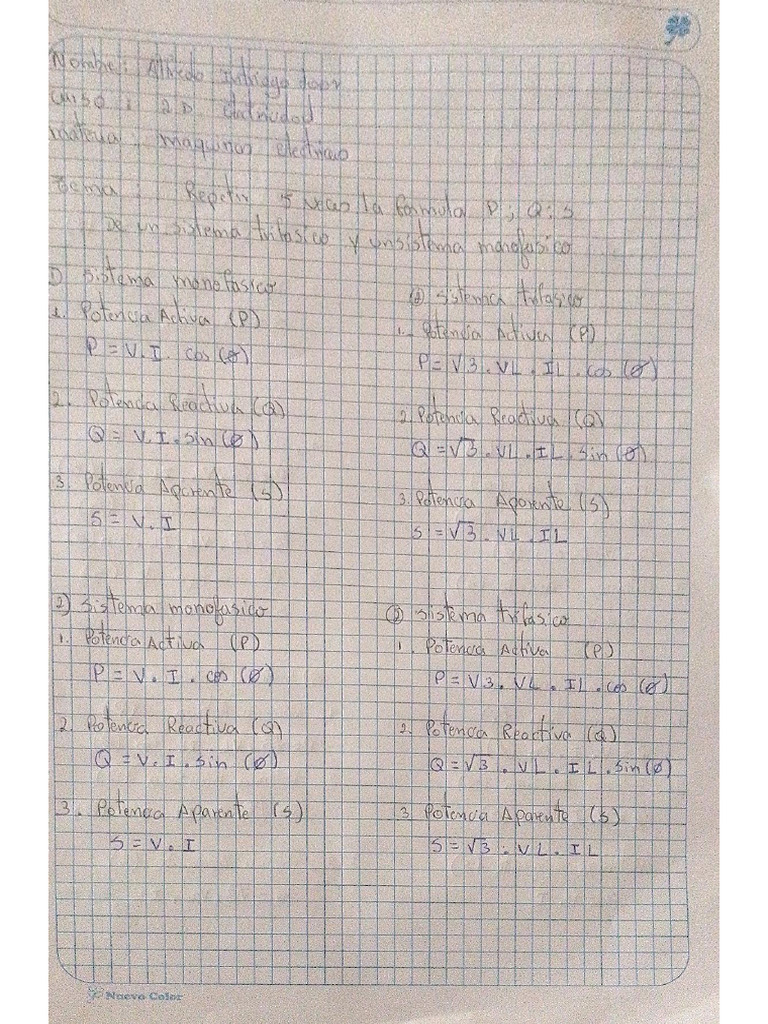 Nombre: Alfredo Intriago
curso : 2 D Electricidad
materia : maquinas electricas
Tema : Repetir 5 veces la formula P ; Q ; S
De un sistema trifasico y un sistema monofasico
1) sistema monofasico
1. Potencia Activa (P)
P = V. I. cos (Ø)
2. Potencia Reactiva (Q)
Q = V. I. sin (Ø)
3. Potencia Aparente (S)
S = V. I
① sistema trifasico
1. Potencia Activa (P)
P = √3 . VL . IL . cos (Ø)
2. Potencia Reactiva (Q)
Q = √3 . VL . IL . sin (Ø)
3. Potencia Aparente (S)
S = √3 . VL . IL
2) sistema monofasico
1. Potencia Activa (P)
P = V. I . cos (Ø)
2. Potencia Reactiva (Q)
Q = V. I . sin (Ø)
3. Potencia Aparente (S)
S = V. I
② sistema trifasico
1. Potencia Activa (P)
P = √3 . VL . IL . cos (Ø)
2. Potencia Reactiva (Q)
Q = √3 . VL . IL . sin (Ø)
3 Potencia Aparente (S)
S = √3 . VL . IL
Nuevo Color